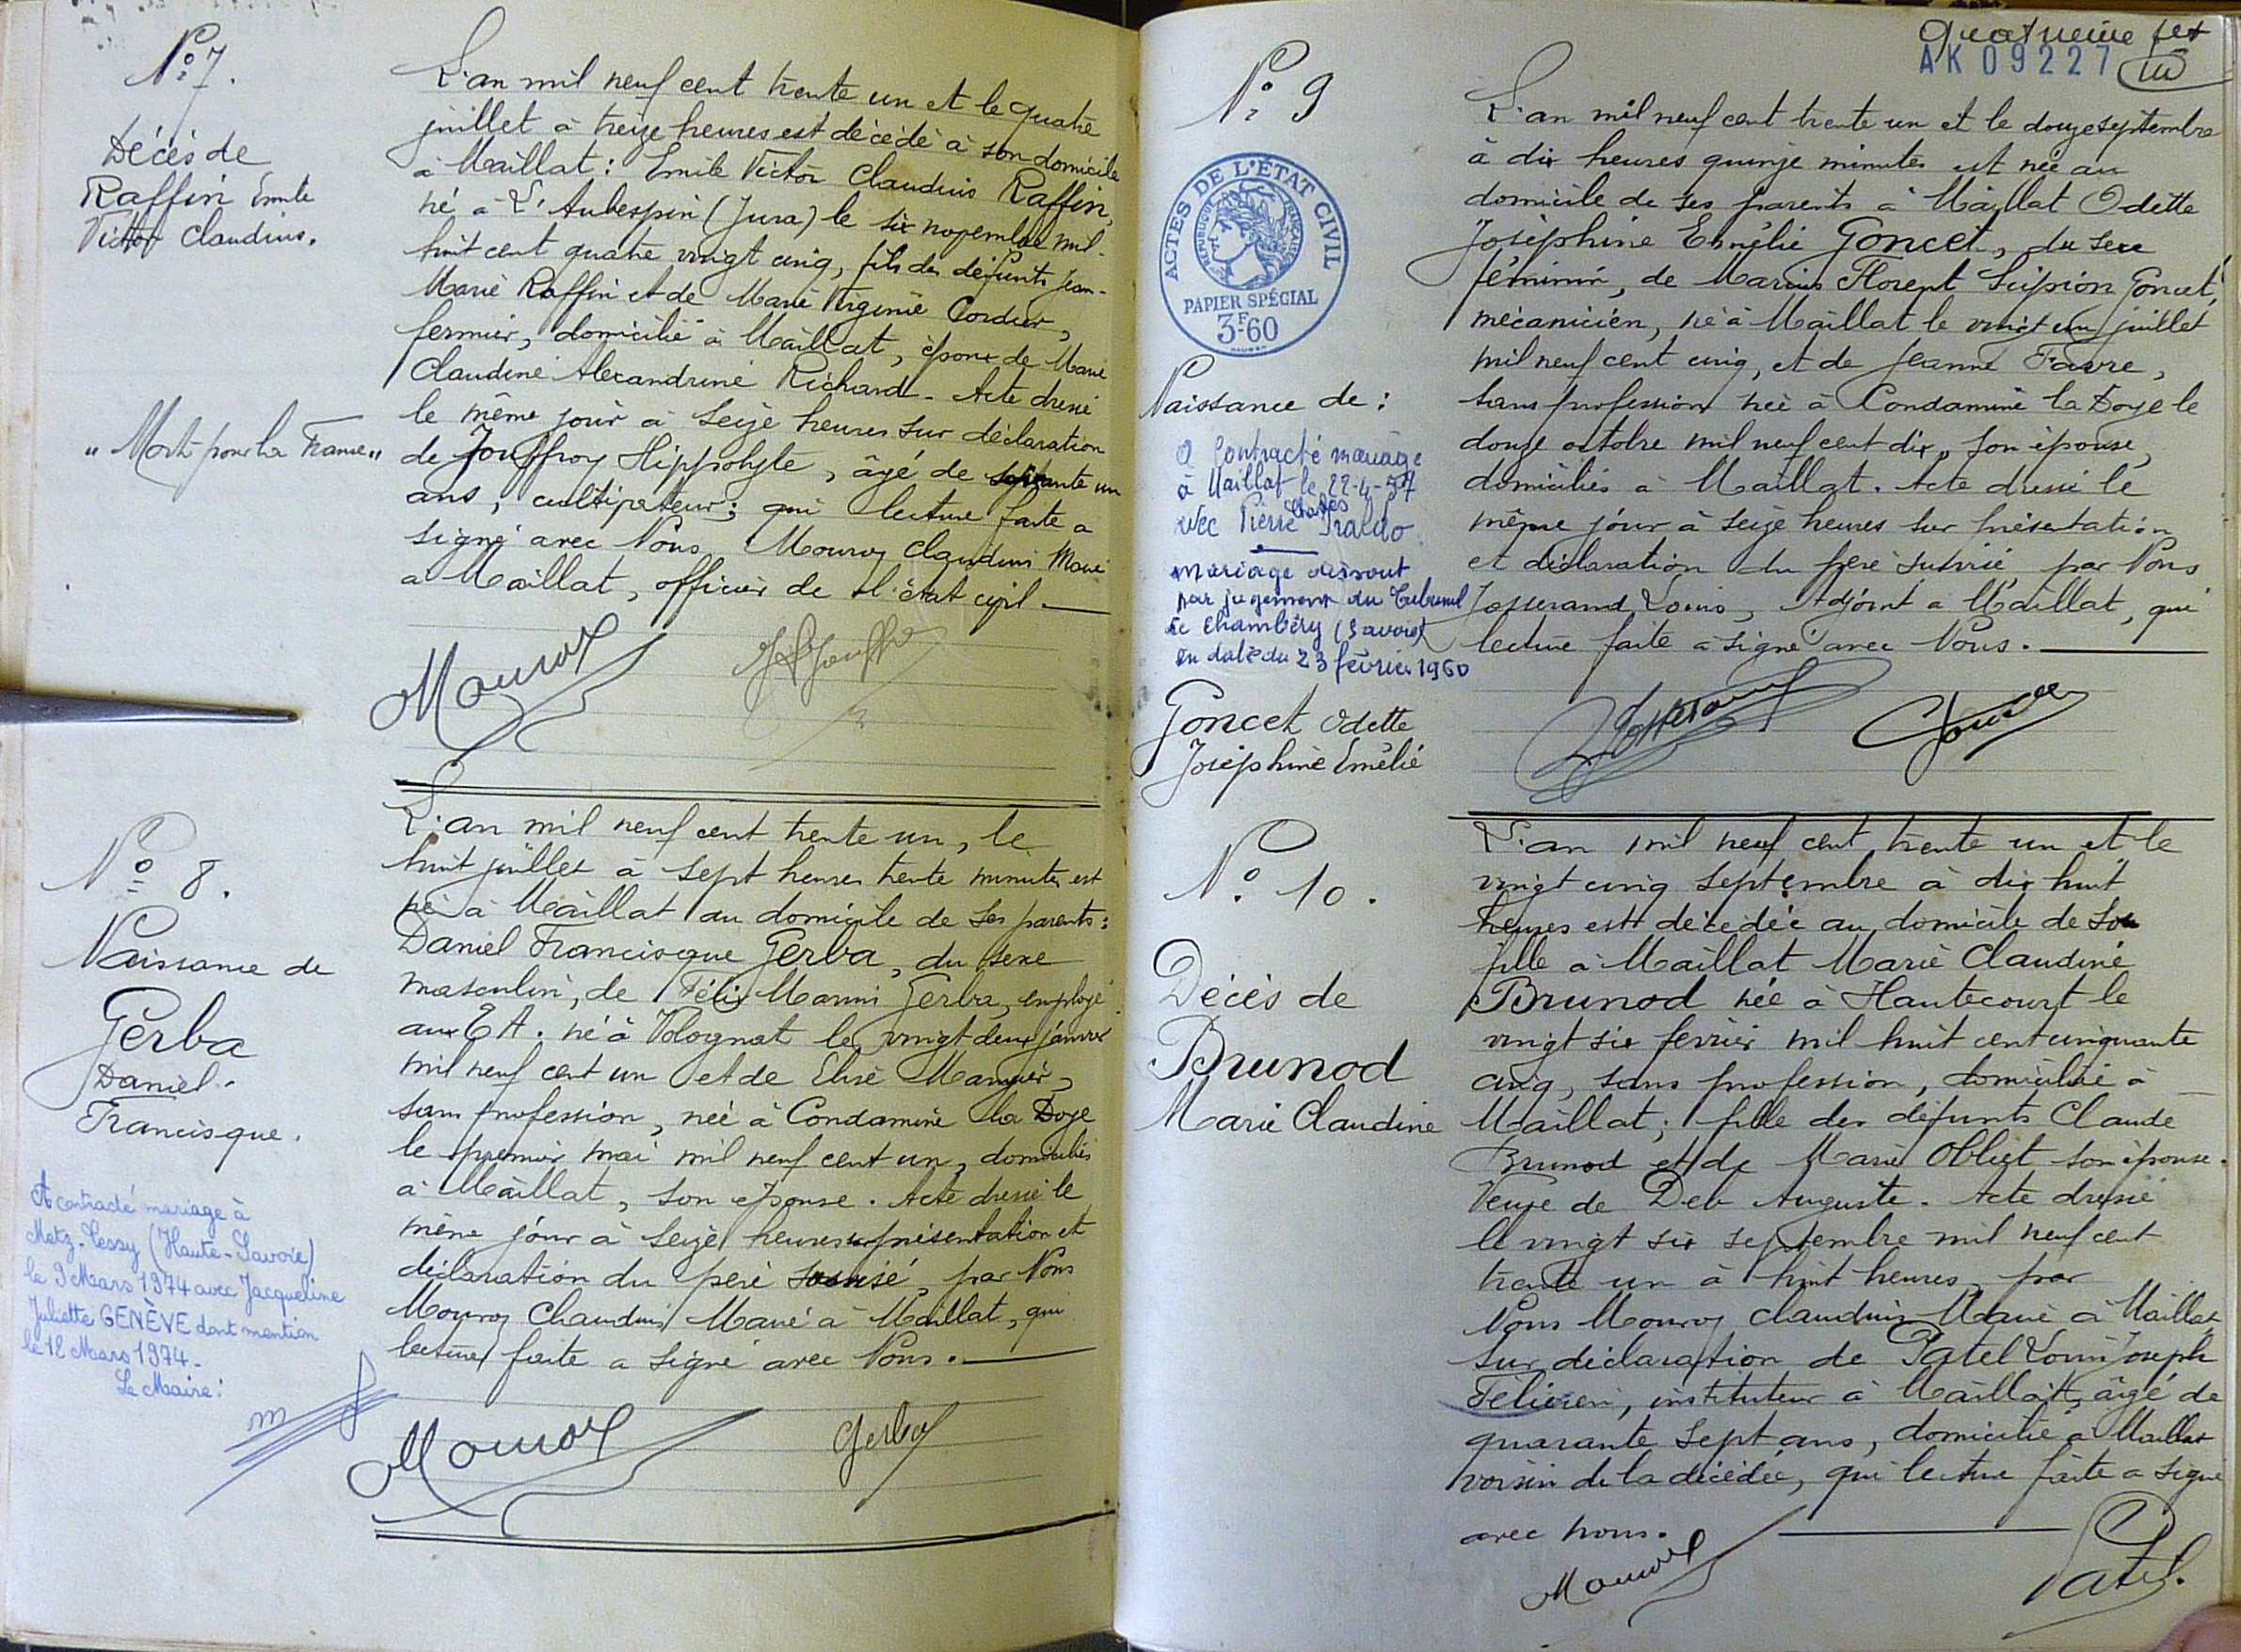 N° 7.
Décès de
Raffin Emile
Victor Claudius.
"Mort pour la France"
L'an mil neuf cent trente un et le quatre
juillet à treize heures est décédé à son domicile
à Maillat : Emile Victor Claudius Raffin,
né à L'Aubespin (Jura) le six novembre mil
huit cent quatre vingt cinq, fils des défunts Jean-
Marie Raffin et de Marie Virginie Cordier,
fermier, domicilié à Maillat, époux de Marie
Claudine Alexandrine Richard. Acte dressé
le même jour à seize heures sur déclaration
de Jouffroy Hippolyte, âgé de soixante un
ans, cultivateur; qui lecture faite a
signé avec Nous Mouroz Claudius Maire
à Maillat, officier de l'état civil.
Mouroz
N° 8.
Naissance de
Gerba
Daniel
Francisque.
A contracté mariage à
Metz-Tessy (Haute-Savoie)
le 9 Mars 1974 avec Jacqueline
Juliette GENÈVE dont mention
le 12 Mars 1974.
Le Maire :
L'an mil neuf cent trente un, le
huit juillet à sept heures trente minutes est
né à Maillat au domicile de ses parents :
Daniel Francisque Gerba, du sexe
masculin, de Félix Marius Gerba, employé
aux E A. né à Volognat le vingt deux janvier
mil neuf cent un et de Elise Mangier,
sans profession, née à Condamine la Doye
le premier mai mil neuf cent un, domiciliés
à Maillat, son épouse. Acte dressé le
même jour à seize heures sur présentation et
déclaration du père susvisé, par Nous
Mouroz Claudius Maire à Maillat, qui
lecture faite a signé avec Nous.
Mouroz Gerba
quatrième
AK 09227
N° 9
ACTES DE L'ÉTAT CIVIL
RÉPUBLIQUE FRANÇAISE
PAPIER SPÉCIAL
3F60
Naissance de :
a contracté mariage
à Maillat le 22-4-57
Charles
avec Pierre Traldo.
Mariage dissout
par jugement du Tribunal
de Chambéry (Savoie)
en date du 23 février 1960
Goncet Odette
Joséphine Emélie
L'an mil neuf cent trente un et le douze septembre
à dix heures quinze minutes est née au
domicile de ses parents à Maillat Odette
Joséphine Emélie Goncet, du sexe
féminin, de Marius Florent Scipion Goncet,
mécanicien, né à Maillat le vingt un juillet
mil neuf cent cinq, et de Jeanne Favre,
sans profession née à Condamine la Doye le
douze octobre mil neuf cent dix, son épouse,
domiciliés à Maillat. Acte dressé le
même jour à seize heures sur présentation
et déclaration du père susvisé, par Nous
Josserand Louis, Adjoint à Maillat, qui
lecture faite a signé avec Nous.
N° 10.
Décès de
Brunod
Marie Claudine
L'an mil neuf cent trente un et le
vingt cinq septembre à dix huit
heures est décédée au domicile de sa
fille à Maillat Marie Claudine
Brunod née à Hautecourt le
vingt six février mil huit cent cinquante
cinq, sans profession, domiciliée à
Maillat; fille des défunts Claude
Brunod et de Marie Obliet son épouse.
Veuve de Deb Auguste. Acte dressé
le vingt six septembre mil neuf cent
trente un à huit heures, par
Nous Mouroz Claudius Maire à Maillat
sur déclaration de Patel Louis Joseph
Félicien, instituteur à Maillat, âgé de
quarante sept ans, domicilié à Maillat
voisin de la décédée, qui lecture faite a signé
avec nous.
Mouroz Patel.